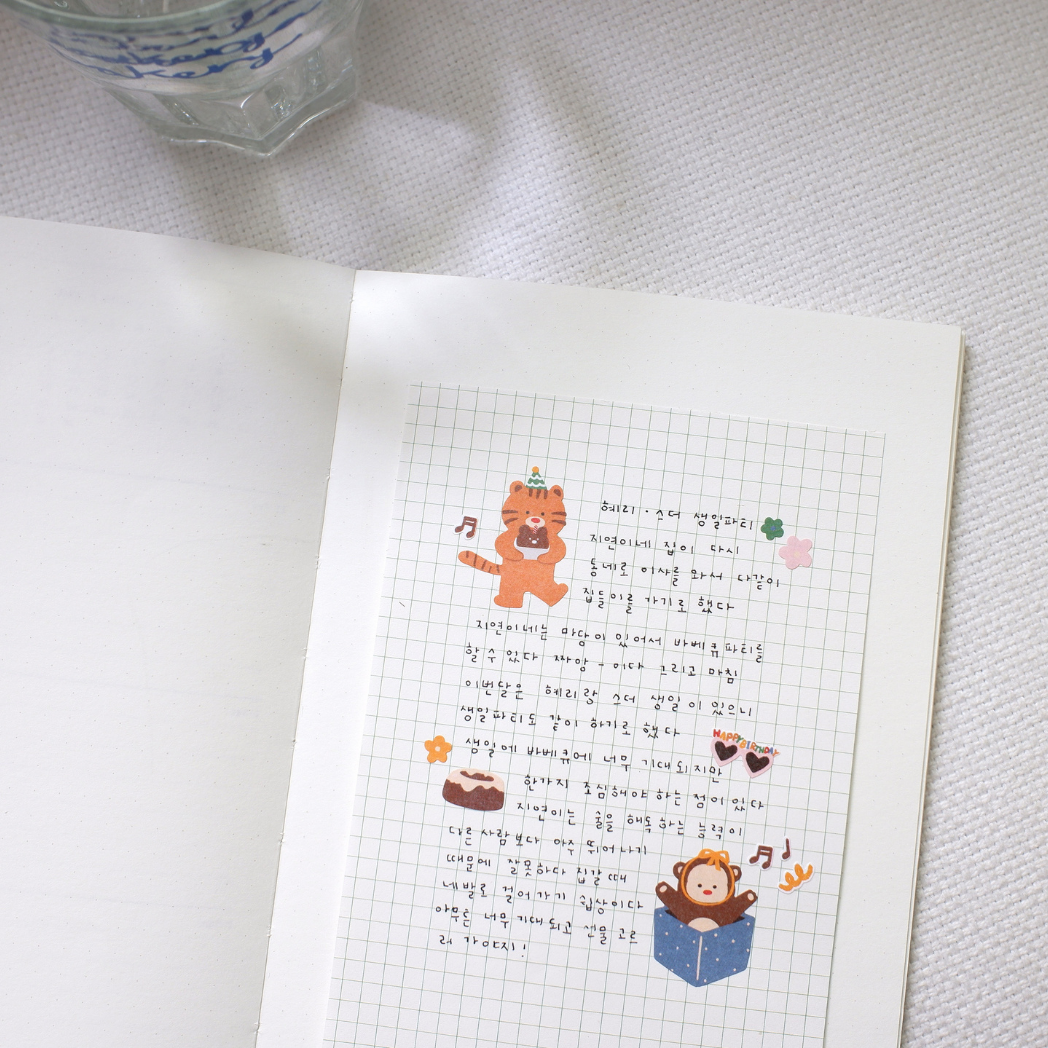 bakery
혜리·수더 생일파티
지연이네 집이 다시
동네로 이사를 와서 다같이
집들이를 가기로 했다
지연이네는 마당이 있어서 바베큐파티를
할 수 있다 짜앙 - 이다 그리고 마침
이번달은 혜리랑 수더 생일이 있으니
생일파티도 같이 하기로 했다
HAPPY BIRTHDAY
생일에 바베큐에 너무 기대되지만
한가지 조심해야 하는 점이 있다
지연이는 술을 해독하는 능력이
다른 사람보다 아주 뛰어나기
때문에 잘못하다 집갈때
네발로 걸어가기 십상이다
아무튼 너무 기대되고 선물 고르
러 가야지!